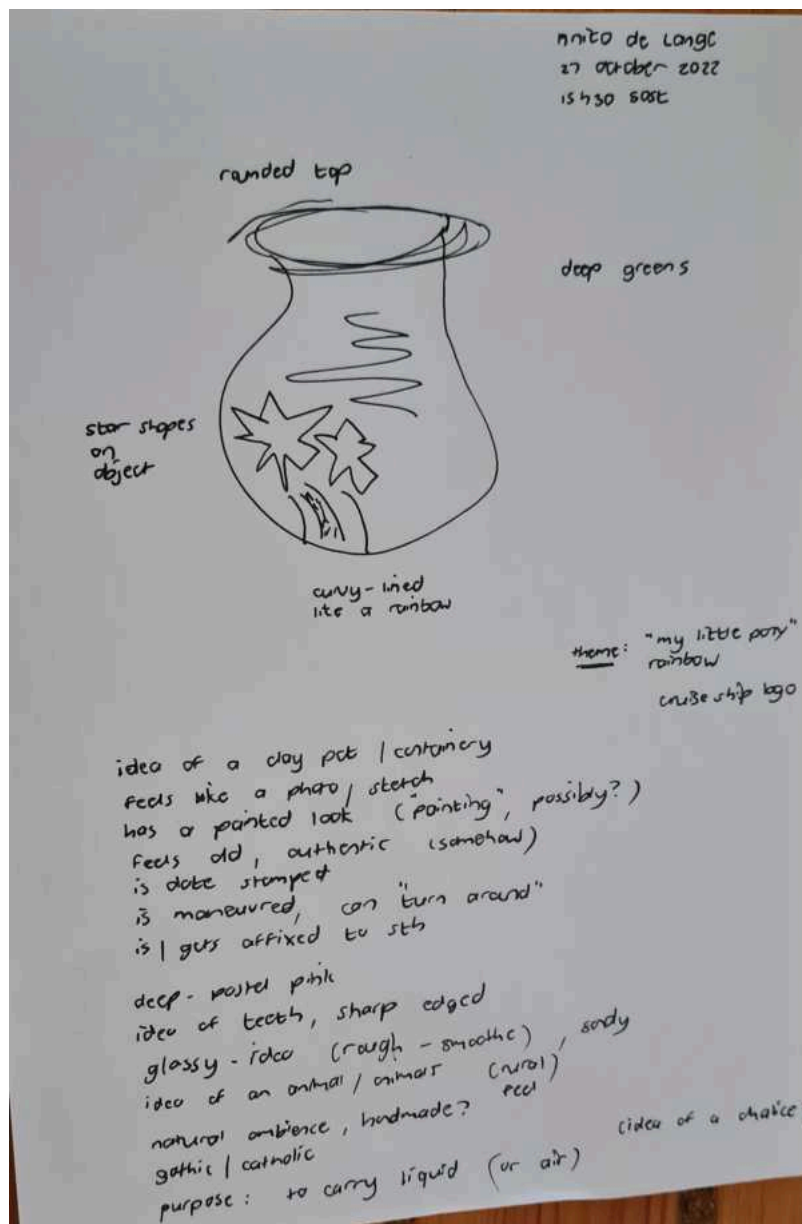 Anito de Lange
27 October 2022
15h30 SAST
rounded top
deep greens
star shapes
on
object
curvy-lined
like a rainbow
theme: "my little pony"
rainbow
cruise ship logo
idea of a clay pot / containery
feels like a photo / sketch
has a painted look ("painting", possibly?)
feels old, authentic (somehow)
is date stamped
is maneuvred, can "turn around"
is / gets affixed to sth
deep-pastel pink
idea of teeth, sharp edged
glassy-idea (rough - smoothe), sandy
idea of an animal / animals (rural)
natural ambience, handmade? feel
gothic / catholic
purpose: to carry liquid (or air) (idea of a chalice